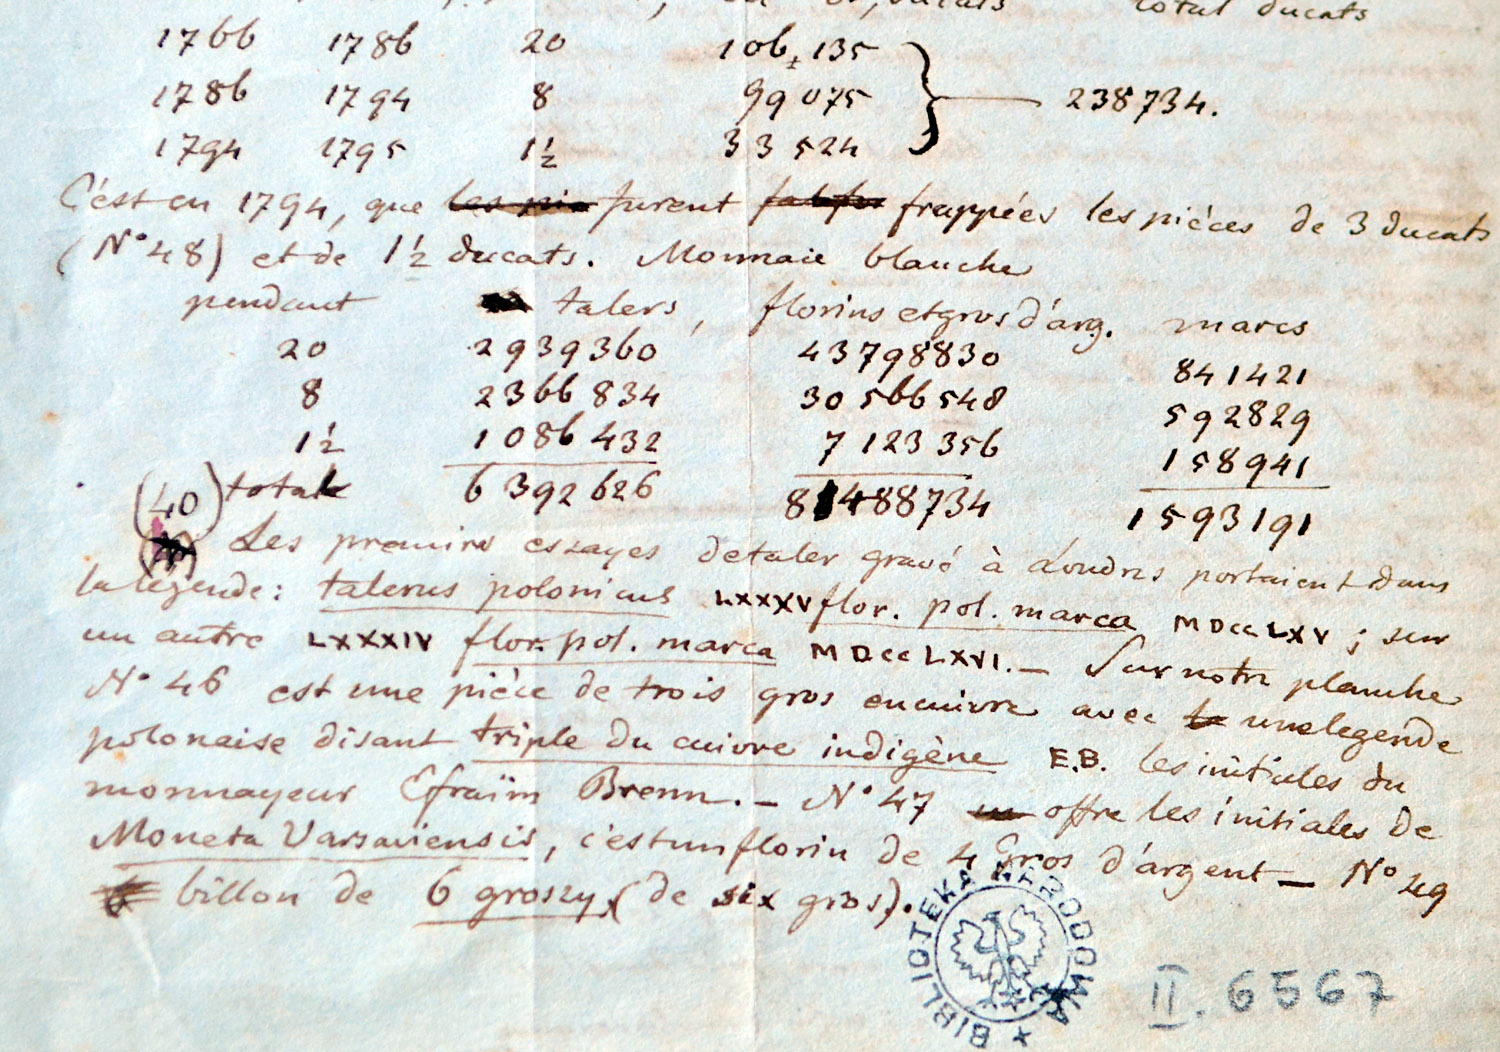 total ducats
1766 1786 20 106,135
1786 1794 8 99075 238734.
1794 1795 1½ 33524
C'est en 1794, que furent frappées les pièces de 3 ducats
(N° 48) et de 1½ ducats. Monnaie blanche
pendant talers, florins et gros d'arg. marcs
20 2939360 43798830 841421
8 2366834 30566548 592829
1½ 1086432 7123356 158941
(40) total 6392626 81488734 1593191
Les premiers essayes de taler gravé à Londres portaient dans
la légende: talerus polonicus LXXXV flor. pol. marca MDCCLXV; sur
un autre LXXXIV flor. pol. marca MDCCLXVI. — Sur notre planche
N° 46 est une pièce de trois gros en cuivre avec une legende
polonaise disant triple du cuivre indigène E.B. les initiales du
monnayeur Efraïm Brenn. — N° 47 offre les initiales de
Moneta Varsaviensis, c'est un florin de 4 Gros d'argent — N° 49
billon de 6 groszy (de six gros).
BIBLIOTEKA NARODOWA
II. 6567